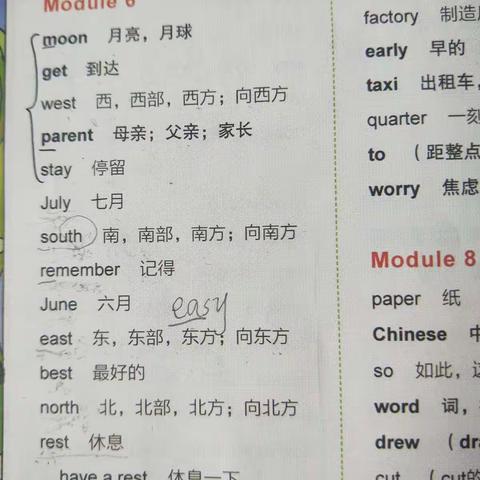 Module 6
moon 月亮，月球
get 到达
west 西，西部，西方；向西方
parent 母亲；父亲；家长
stay 停留
July 七月
south 南，南部，南方；向南方
remember 记得
June 六月
easy
east 东，东部，东方；向东方
best 最好的
north 北，北部，北方；向北方
rest 休息
have a rest 休息一下
factory 制造
early 早的
taxi 出租车，
quarter 一刻
to （距整点
worry 焦虑
Module 8
paper 纸
Chinese
so 如此，
word 词，
drew （
cut （cut的